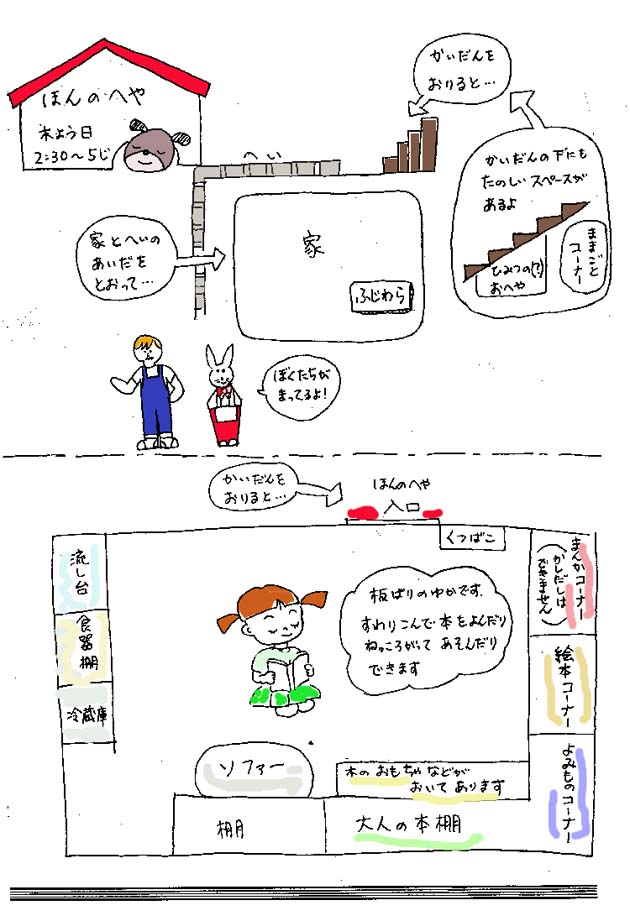 ほんのへや
木よう日
2:30〜5じ
かいだんを
おりると…
へい
かいだんの下にも
たのしいスペースが
あるよ
ままごと
コーナー
ひみつの(?)
おへや
家とへいの
あいだを
とおって…
家
ふじわら
ぼくたちが
まってるよ!
かいだんを
おりると…
ほんのへや
入口
くつばこ
流し台
食器棚
冷蔵庫
板ばりのゆかです.
すわりこんで本をよんだり
ねっころがって あそんだり
できます
まんがコーナー
(かしだしは
できません)
絵本コーナー
よみものコーナー
ソファー
木のおもちゃなどが
おいてあります
棚
大人の本棚